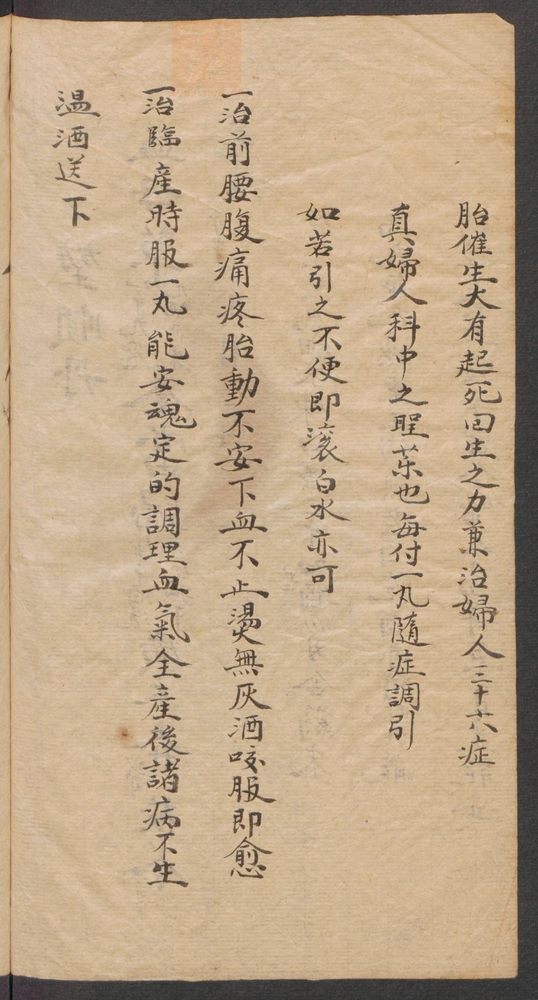 胎催生大有起死回生之力兼治婦人三十六症
真婦人科中之聖藥也每付一丸隨症調引
如若引之不便即滚白水亦可
一治前腰腹痛疼胎動不安下血不止燙無灰酒咬服即愈
一治臨産時服一丸能安魂定的調理血氣全産後諸病不生
温酒送下